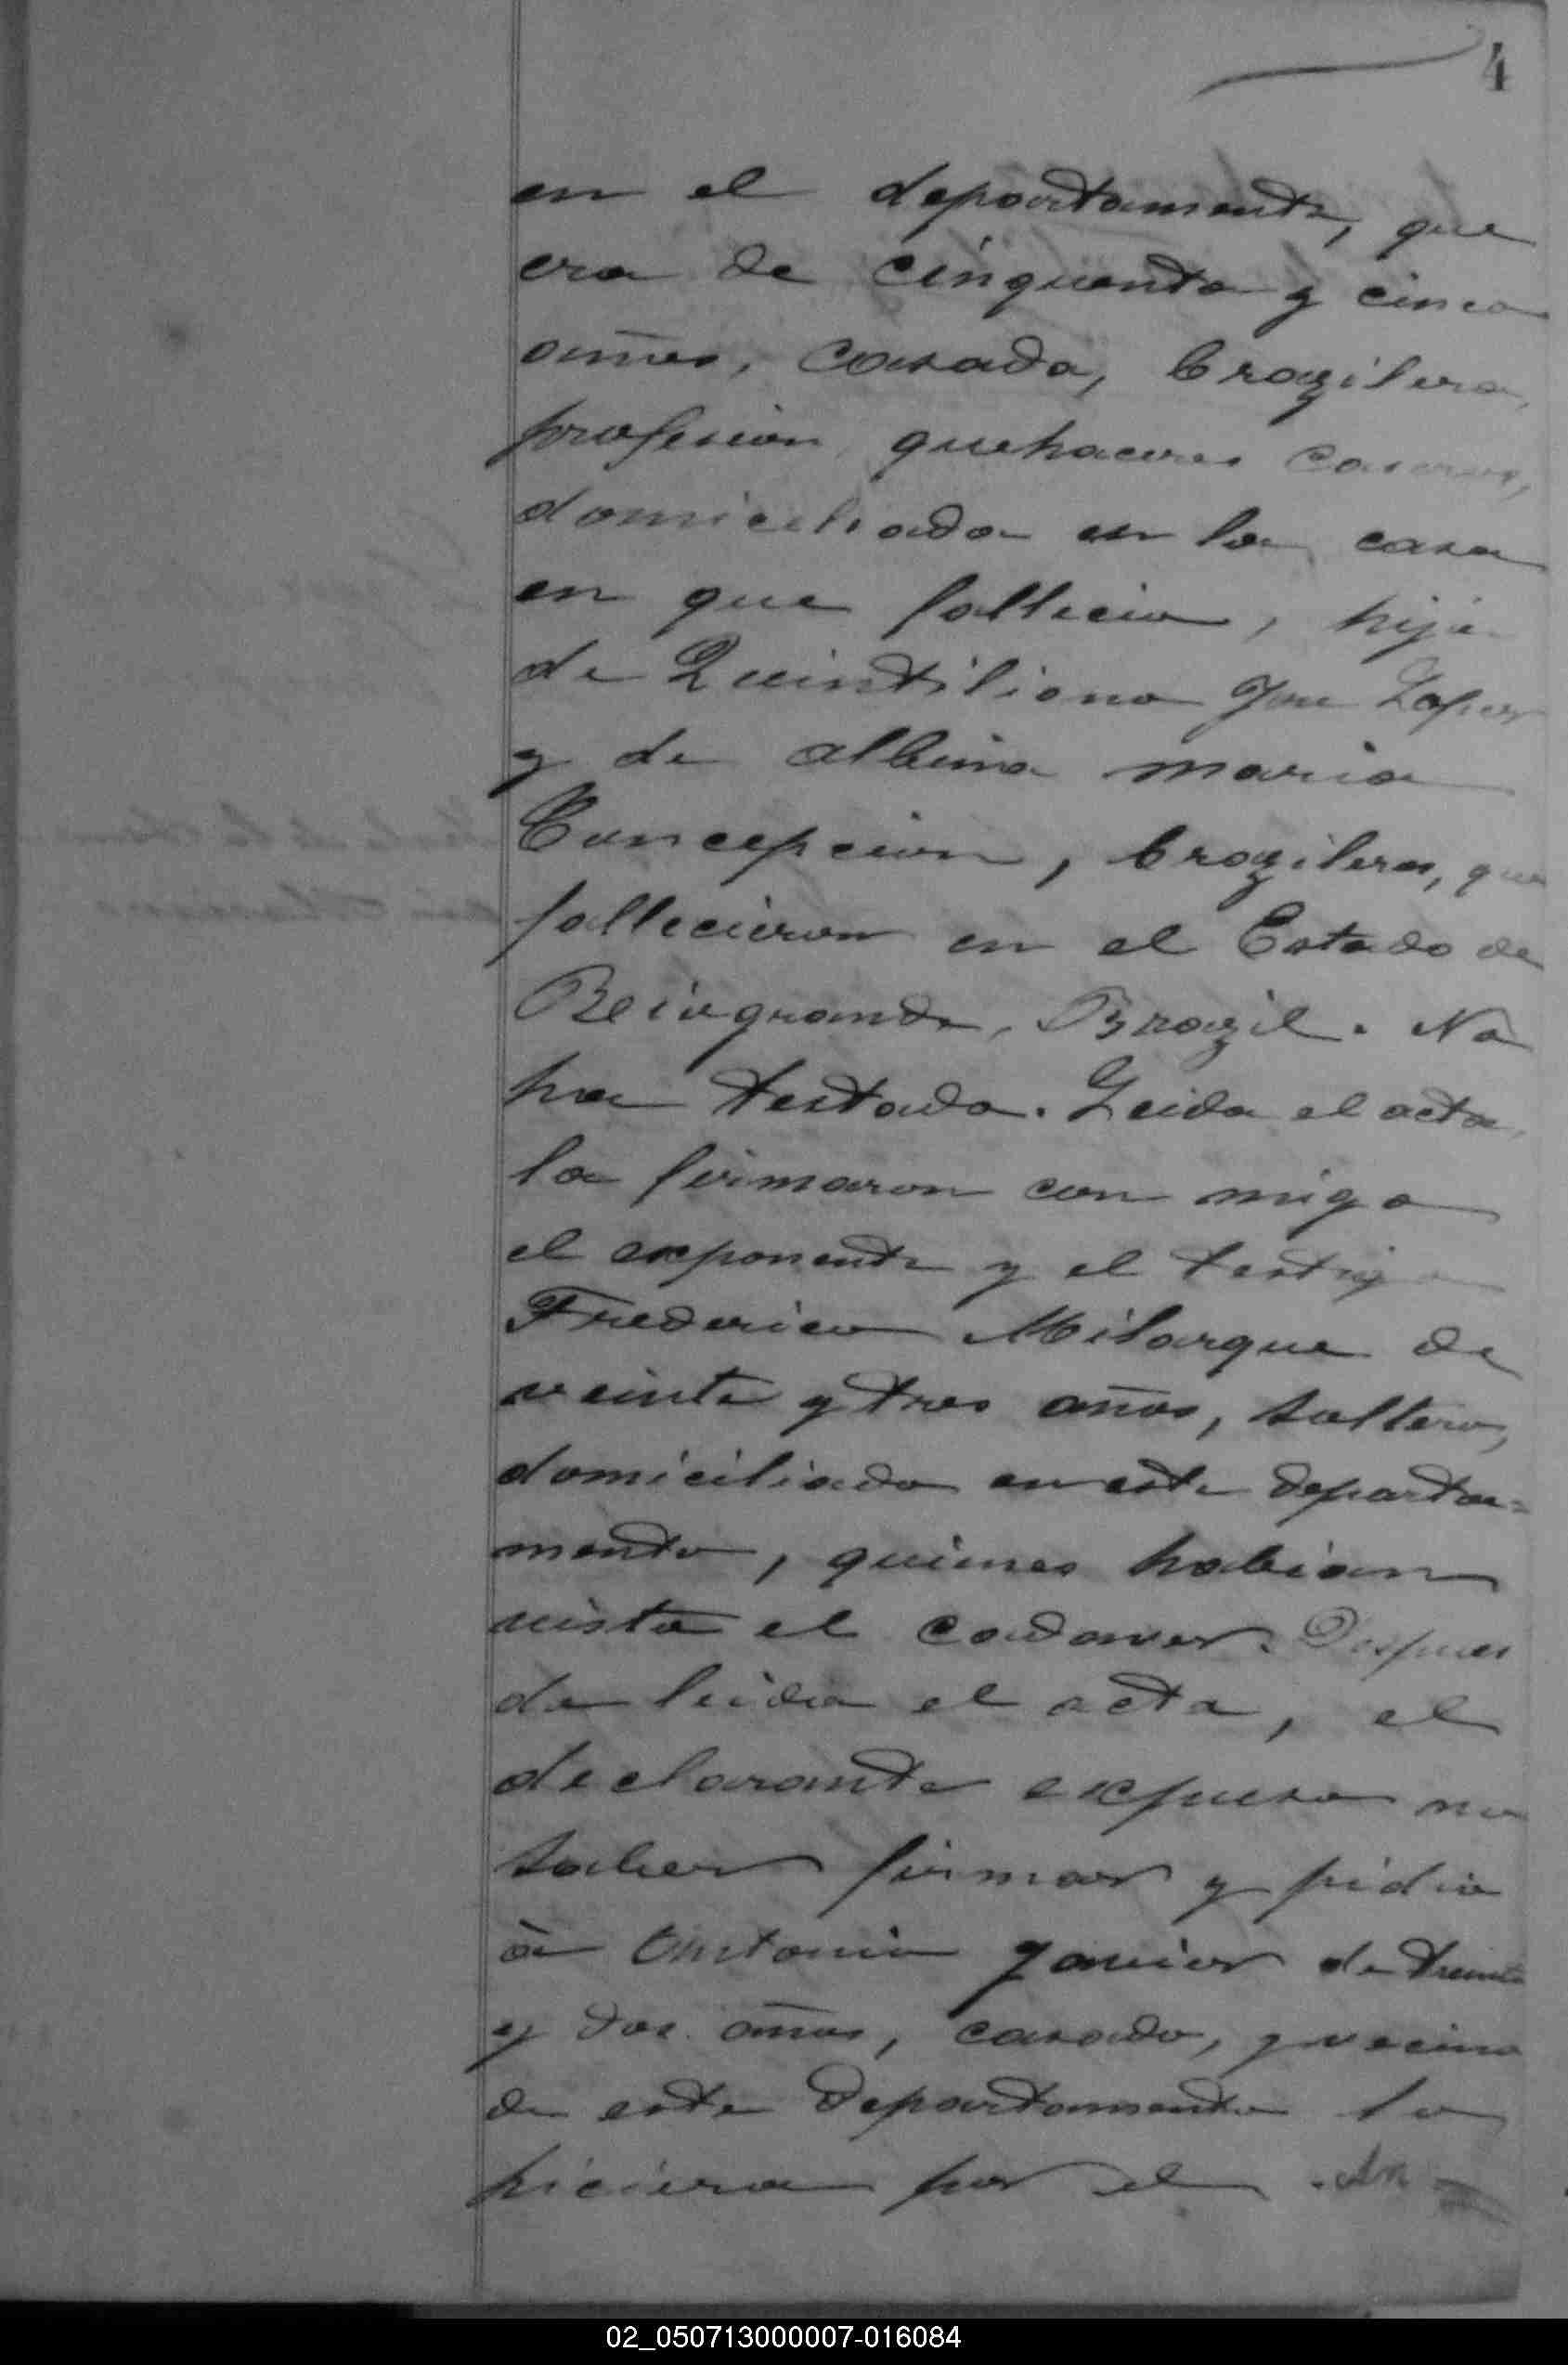 4
en el departamento, que
era de cinquenta y cinco
años, casada, brazilera,
profesion quehaceres caseros,
domiciliada en la casa
en que fallecio, hija
de Quintiliano José Lopes
y de Albina Maria
Concepcion, brazileros, que
fallecieron en el Estado de
Reiogrande, Brazil. No
ha testado. Leida el acta
la firmaron con migo
el exponente y el testigo
Frederico Milarque de
veinte y tres años, soltero,
domiciliado en este departa=
mento, quienes habian
visto el cadaver. Despues
de leida el acta, el
declarante expuso no
saber firmar y pidio
à Antonio de treinta
y dos años, casado, y vecino
de este departamento lo
hiciera por el
02_050713000007-016084